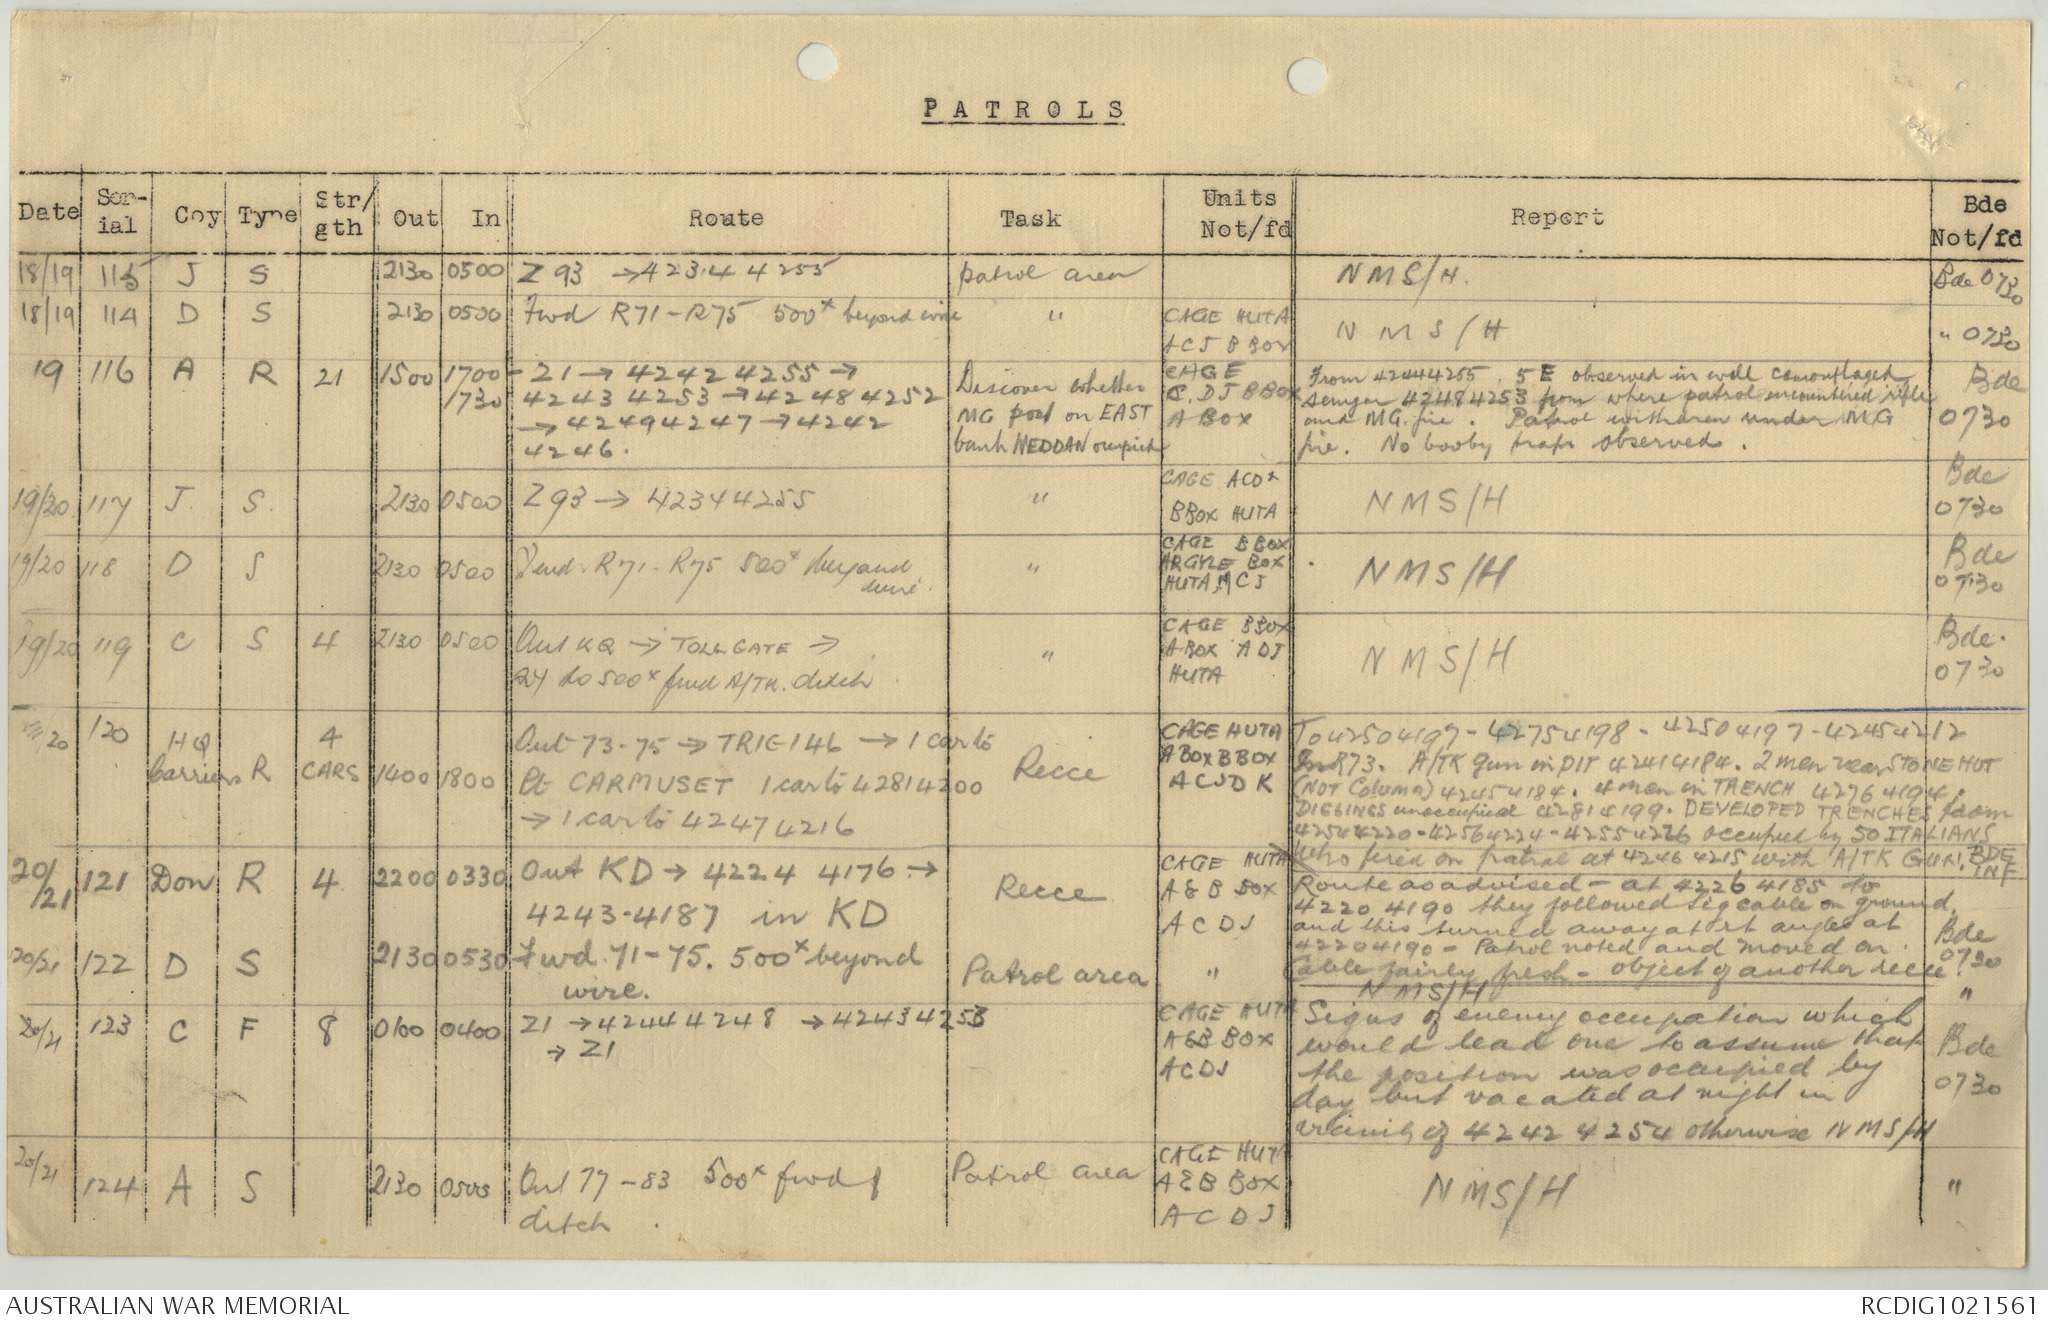 PATROLS
Date Ser-ial Coy Type Str/gth Out In Route Task Units Not/fd Report Bde Not/fd
18/19 115 J S 2130 0500 Z 93 → 42344255 patrol area NMS/H. Bde 0730
18/19 114 D S 2130 0500 Fwd R71-R75 500x beyond wire " CAGE HUTA
ACJ B BOX NMS/H " 0730
19 116 A R 21 1500 1700 - Z1 → 42424255 →
/730 42434253 → 42484252
→ 42494247 → 4242
4246.
Discover whether
MG post on EAST
bank WEDDAN occupied
CAGE
C. DJ B BOX
A BOX
From 42444255, 5 E observed in well camouflaged
sangar 42484253 from where patrol encountered rifle
and MG. fire. Patrol withdrew under MG
fire. No booby traps observed.
Bde
0730
19/20 117 J. S. 2130 0500 Z 93 → 42344255 "
CAGE ACDx
B BOX HUTA
NMS/H
Bde
0730
19/20 118 D S 2130 0500 Fwd. R71-R75 500x beyond
wire. "
CAGE B BOX
ARGYLE BOX
HUTA, A CJ
NMS/H
Bde
0730
19/20 119 C S 4 2130 0500 Out KQ → TOLLGATE →
to 500x fwd A/TK. ditch "
CAGE B BOX
A BOX A DJ
HUTA
NMS/H
Bde.
0730
20 120 HQ
Carriers R 4
CARS 1400 1800
Out 73-75 → TRIG 146 → 1 car to
Pt CARMUSET 1 car to 42814200
→ 1 car to 42474216
Recce
CAGE HUTA
A BOX B BOX
A CJD K
To 42504197 - 42754198 - 42504197 - 42454212
R73. A/TK gun in PIT 42414184. 2 men near STONE HUT
(NOT Column) 42454184. 4 men in TRENCH 42764194.
DIGGINGS unoccupied 42814199. DEVELOPED TRENCHES from
42504220-42564224-42554226 occupied by 50 ITALIANS
who fired on patrol at 42464215 with A/TK GUN. BDE
INF
20/21 121 Don R 4 2200 0330 Out KD → 4224 4176 →
4243-4187 in KD
Recce
CAGE HUTA
A & B BOX
A C D J
Route as advised - at 42264185 to
4220 4190 they followed sig cable on ground,
and this turned away at rt angles at
42204190 - Patrol noted and moved on.
Cable fairly fresh - object of another recce.
Bde
0730
20/21 122 D S 2130 0530 Fwd. 71-75. 500x beyond
wire. Patrol area " NMS/H "
20/21 123 C F 8 0100 0400 Z1 → 42444248 → 42434253
→ Z1
CAGE HUTA
A & B BOX
ACDJ
Signs of enemy occupation which
would lead one to assume that
the position was occupied by
day but vacated at night in
vicinity of 4242 4254 otherwise NMS/H
Bde
0730
20/21 124 A S 2130 0500 Out 77-83 500x fwd of
ditch. Patrol area
CAGE HUTA
A & B BOX
A C D J
NMS/H "
AUSTRALIAN WAR MEMORIAL RCDIG1021561